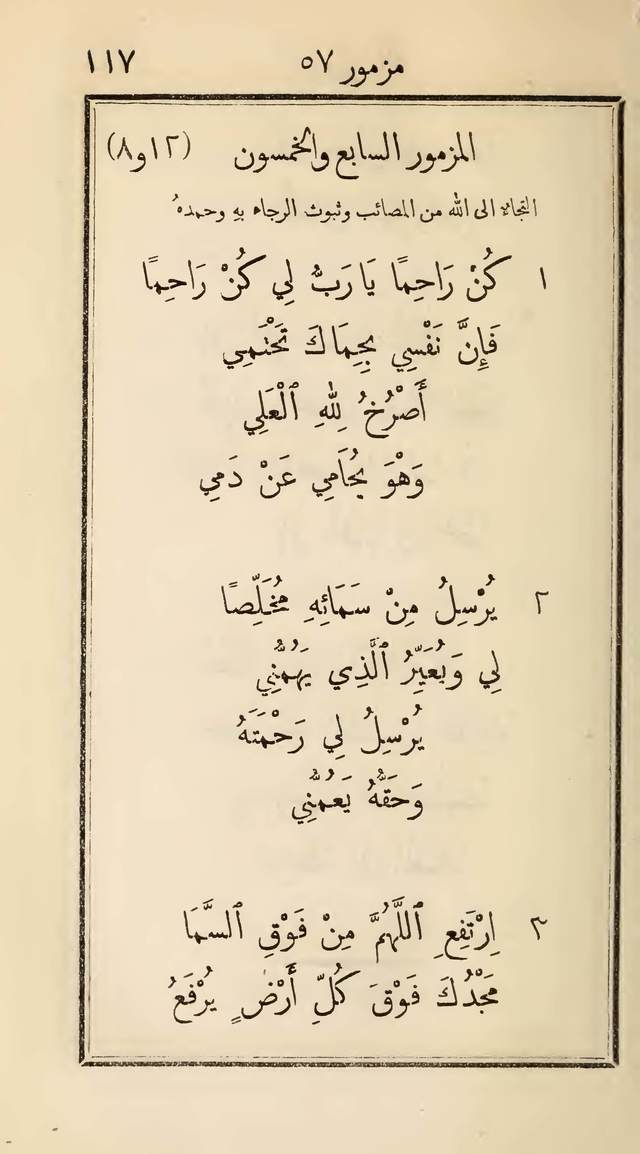 مزمور ٥٧ ١١٧
المزمور السابع والخمسون (١٢ و٨)
التجاء الى الله من المصائب وثبوث الرجاء بهِ وحمدهُ
١ كُنْ رَاحِمًا يَا رَبُّ لِي كُنْ رَاحِمًا
فَإِنَّ نَفْسِي بِحِمَاكَ تَحْتَمِي
أَصْرُخُ لِلهِ ٱلْعَلِي
وَهْوَ يُحَامِي عَنْ دَمِي
٢ يُرْسِلُ مِنْ سَمَائِهِ مُخَلِّصًا
لِي وَيُعَيِّرُ ٱلَّذِي يَهُمُّنِي
يُرْسِلُ لِي رَحْمَتَهُ
وَحَقَّهُ يَعُمُّنِي
٣ اِرْتَفِعِ ٱللَّهُمَّ مِنْ فَوْقِ ٱلسَّمَا
مَجْدُكَ فَوْقَ كُلِّ أَرْضٍ يُرْفَعُ